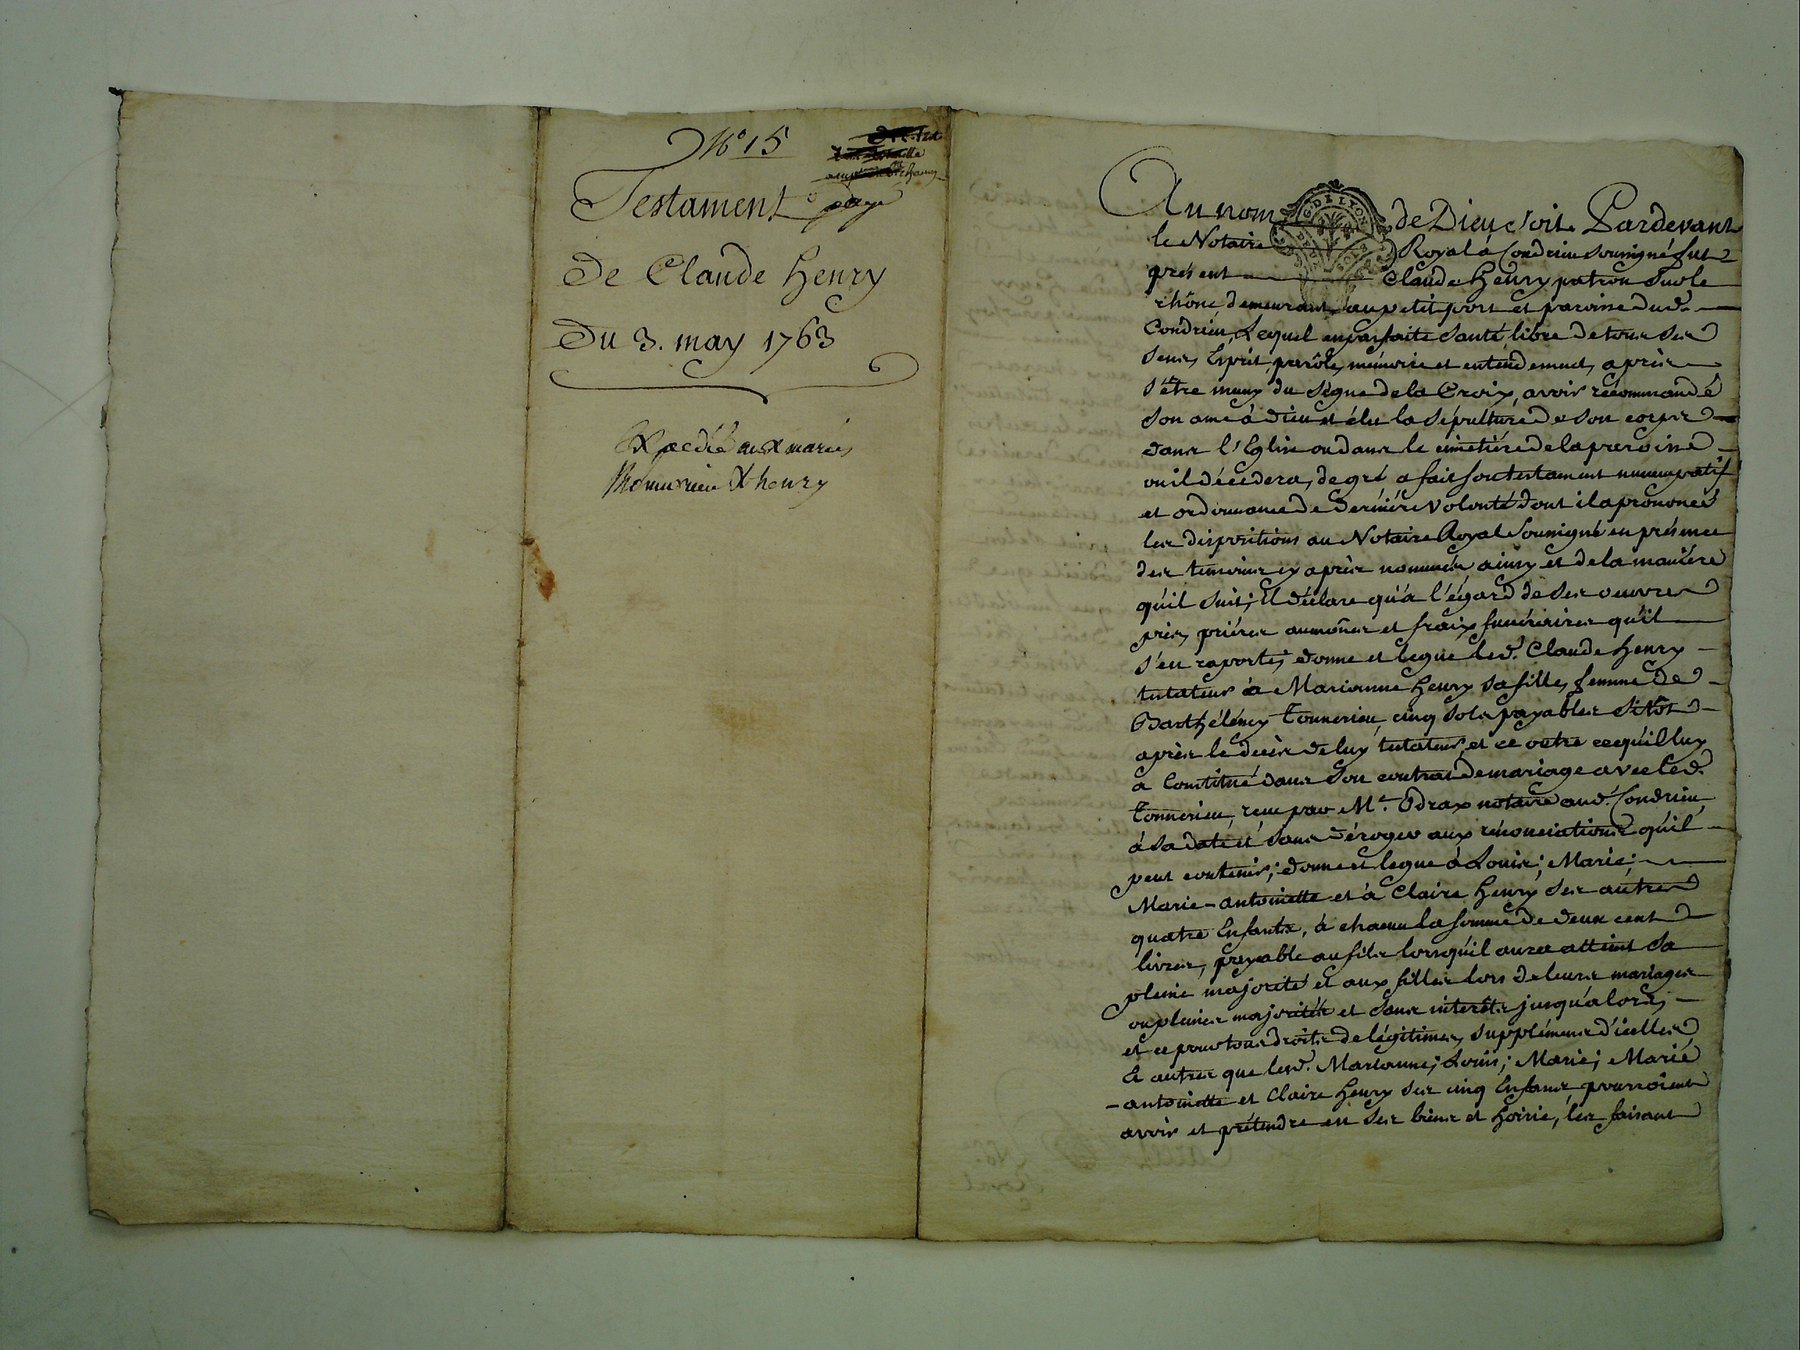 N° 15
Testament
payé
De Claude Henry
Du 3. may 1763
Expedié aux mariés
& henry
G. DE LYON
Au nom de Dieu soit. Pardevant
le Notaire Royal à Condrieu soussigné fut
présent Claude Henry patron sur le
rhône demeurant au petit port et paroisse dud.
Condrieu, Lequel en parfaite santé, libre de tous ses
sens, Esprit, parôle, mémoire et entendement, après
s'être muny du signe de la Croix, avoir récommandé
son ame à dieu et élu la sépulture de son corps
dans l'Eglise ou dans le cimetière de la paroisse
ou il décédera, de gré a fait son testament nuncupatif
et ordonnance de dernière volonté dont il a prononcé
les dispositions au Notaire Royal soussigné en présence
des temoins cy après nommés ainsy et de la manière
qu'il suit; Il déclare qu'à l'égard de ses oeuvres
pies, priéres aumônes et fraix funéraires qu'il
s'en raporte; donne et legue led. Claude Henry
testateur à Marianne Henry sa fille, femme de
Barthélemy Tonnerieu, cinq sols payables sitôt
après le decès de luy testateur, et ce outre ce qu'il luy
a Constitué dans son contrat de mariage avec led.
Tonnerieu, reçu par Me. notaire aud. Condrieu,
à sa date et sans déroger aux rénonciations qu'il
peut contenir; donne et legue à Louis; Marie;
Marie-antoinette et à Claire Henry ses autres
quatre Enfants, à chacun la somme de deux cent
livres, payable au fils lorsqu'il aura atteint sa
pleine majorité et aux filles lors de leurs mariages
ou pleines majorités et sans interêts jusqu'alors;
et ce pour tous droits de légitimes, supplémens d'icelles
& autres que lesd. Marianne; Louis; Marie; Marie
-antoinette et Claire Henry ses cinq Enfans pourroient
avoir et prétendre en ses biens et hoirie, les faisant